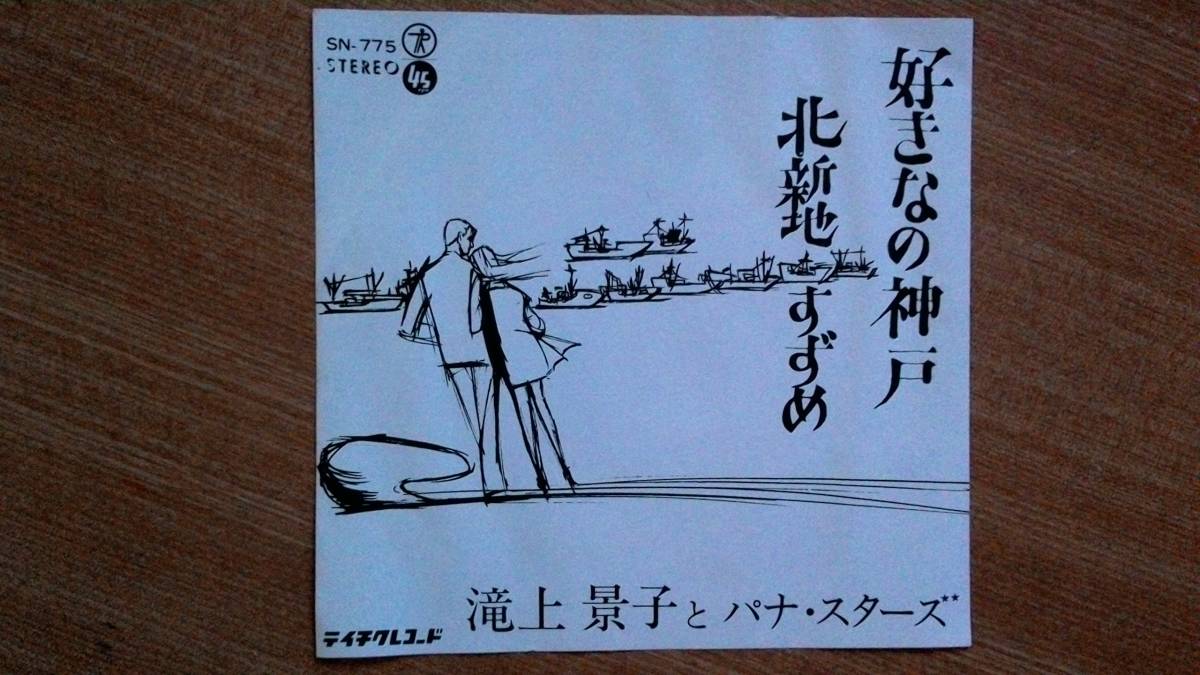 SN-775
STEREO
45
好きなの神戸
北新地すずめ
滝上景子とパナ・スターズ**
テイチクレコード